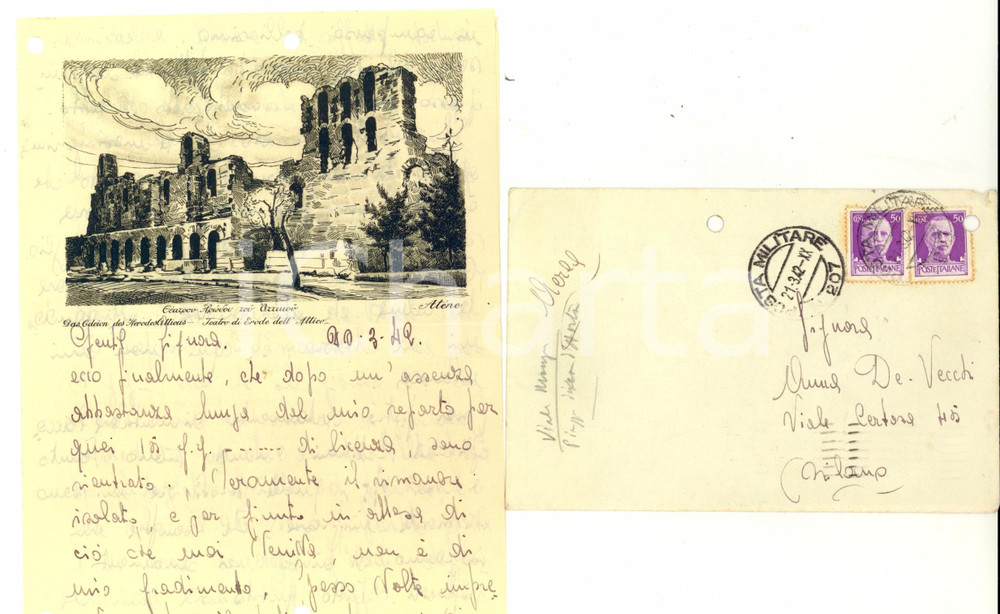 Θέατρον Ηρώδου του Αττικού
Atene
Das Odeion des Herodes Atticus - Teatro di Erode dell'Attico
Gentil Signora. 20-3-42.
ecco finalmente, che dopo un'assenza
abbastanza lunga dal mio reparto per
quei 15 g.g. ........ di licenza, sono
rientrato. Veramente il rimanere
isolato, e per giunta in attesa di
ciò che mai veniva, non è di
mio gradimento, spesso volte impre
iCharta
POSTA MILITARE
21.3.42.XX
402
CENT. 50
POSTE ITALIANE
CENT. 50
POSTE ITALIANE
Signora
Anna De-Vecchi
Viale Certosa 45
Milano
Viale Monza